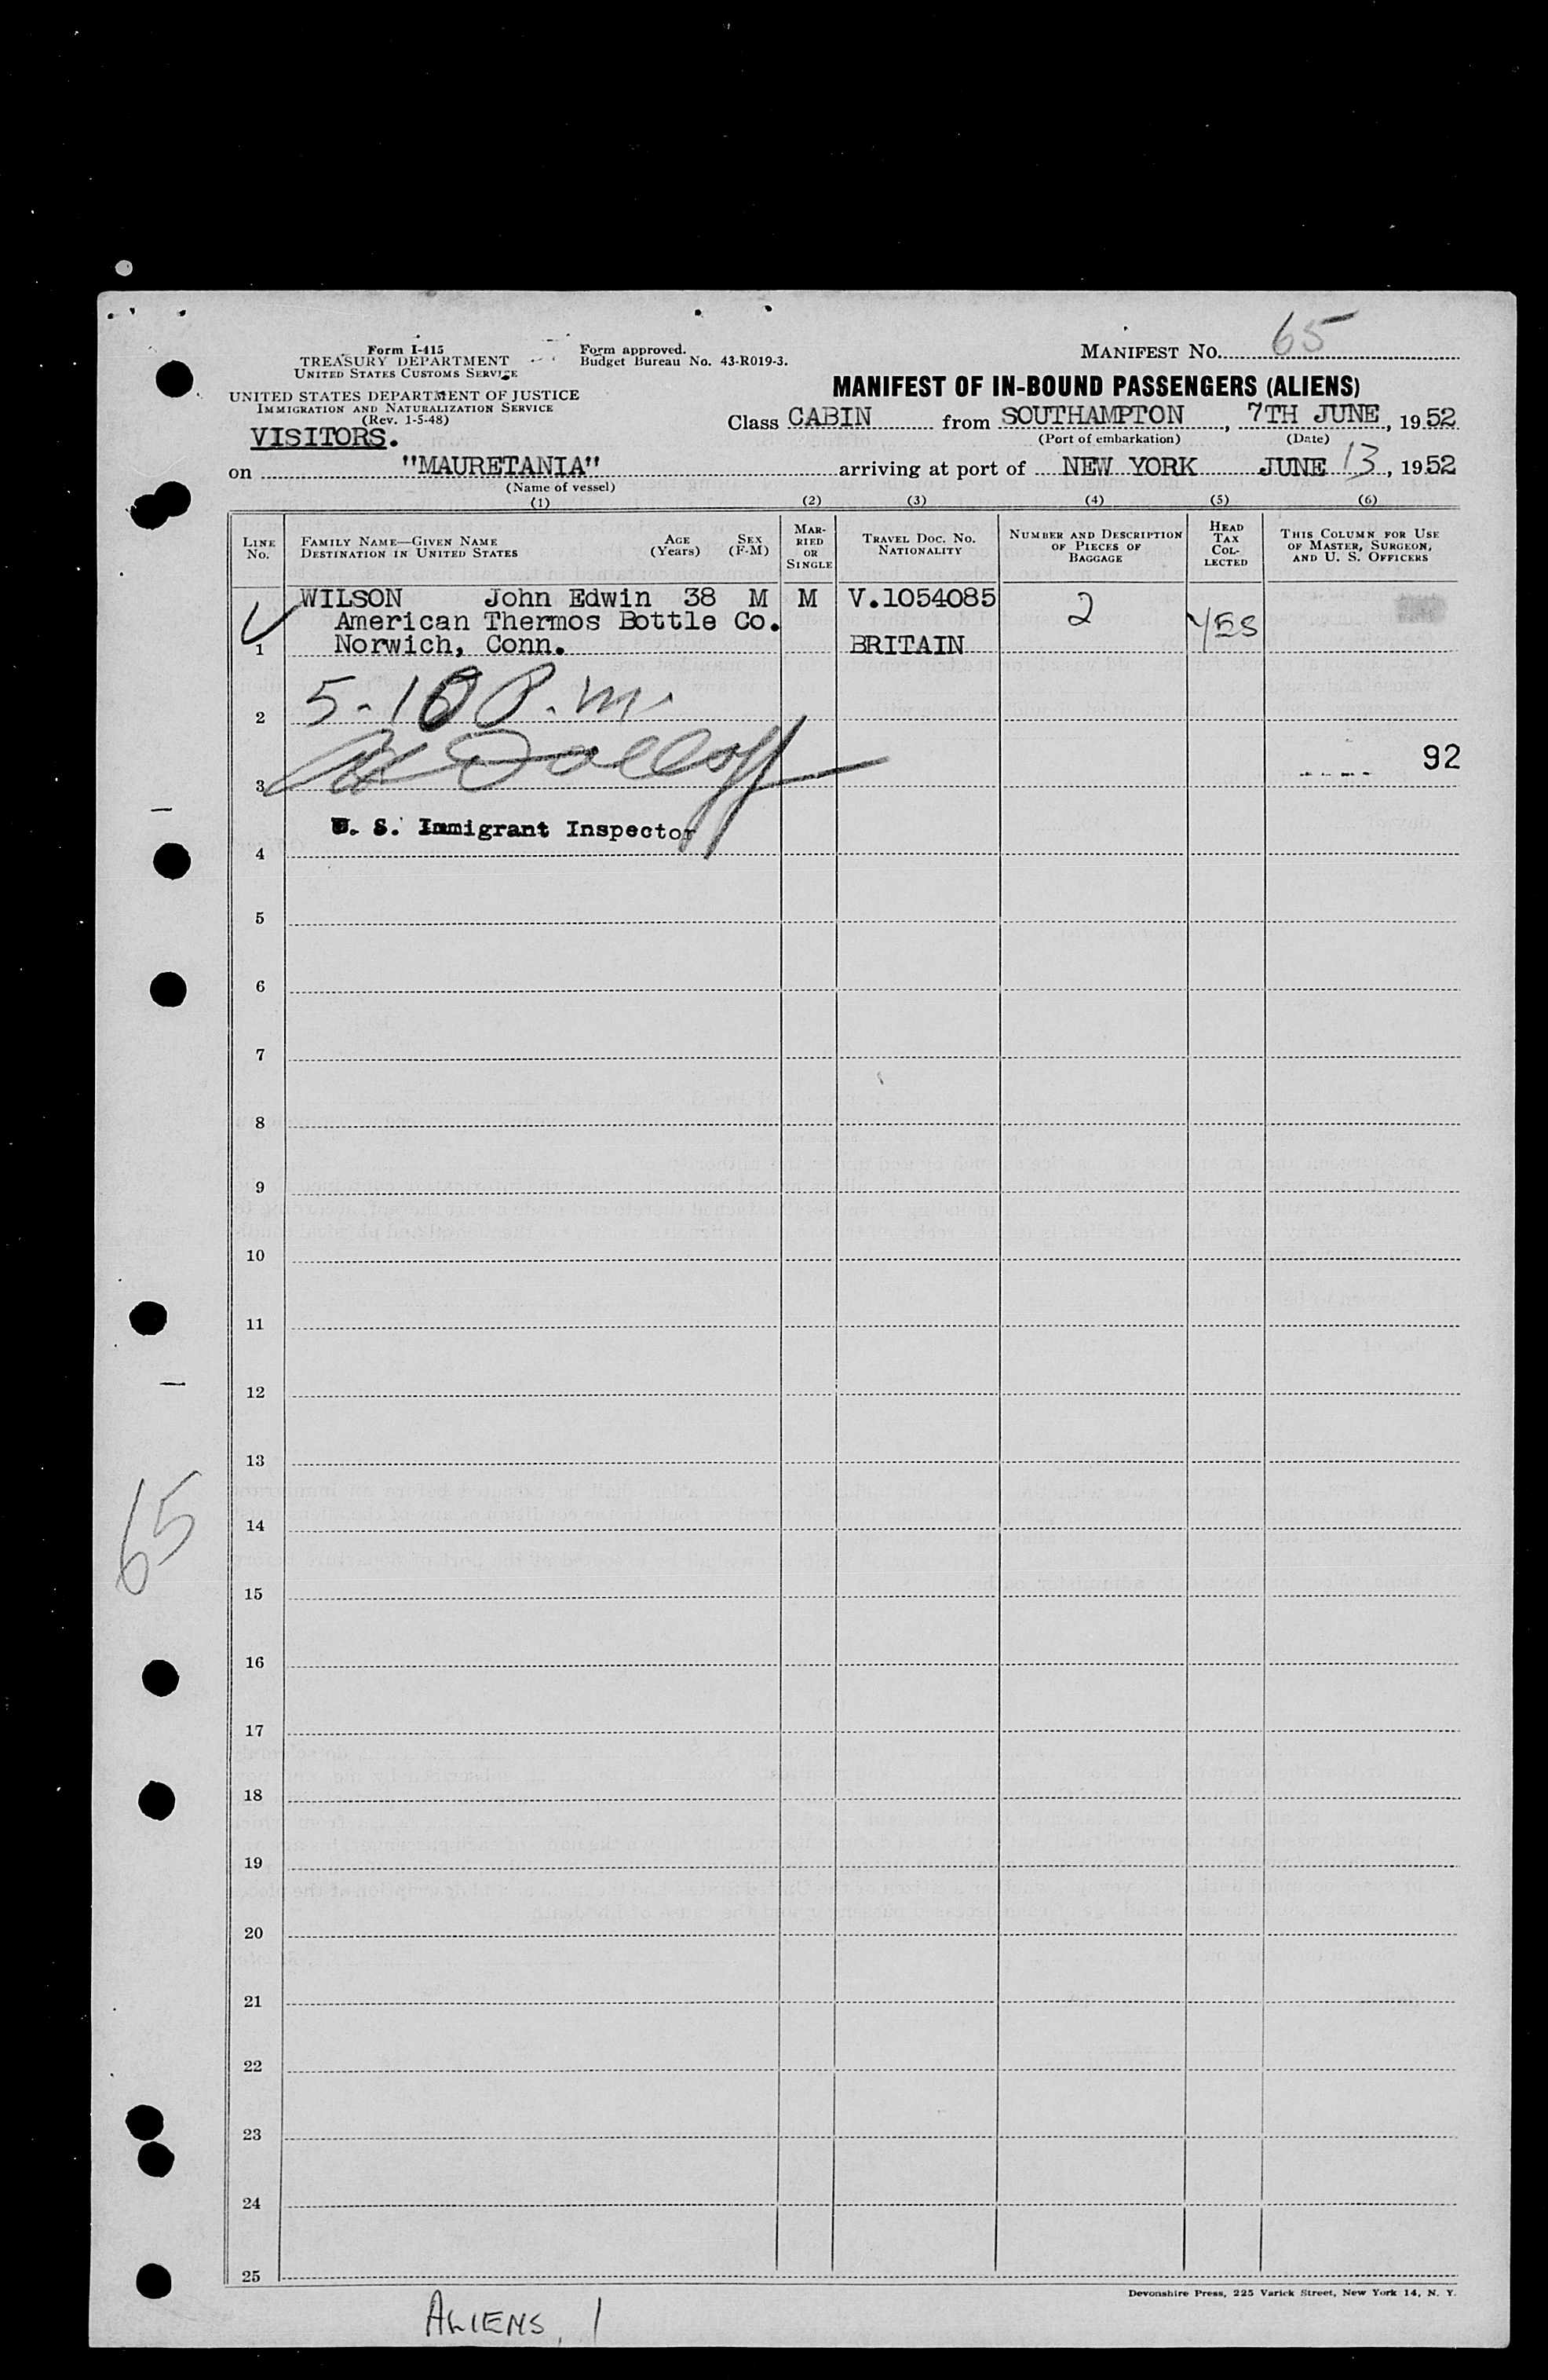 Form I-415
TREASURY DEPARTMENT
UNITED STATES CUSTOMS SERVICE
UNITED STATES DEPARTMENT OF JUSTICE
IMMIGRATION AND NATURALIZATION SERVICE
(Rev. 1-5-48)
VISITORS.
Form approved.
Budget Bureau No. 43-R019-3.
MANIFEST No. 65
MANIFEST OF IN-BOUND PASSENGERS (ALIENS)
Class CABIN from SOUTHAMPTON, 7TH JUNE, 1952
(Port of embarkation) (Date)
on "MAURETANIA" arriving at port of NEW YORK JUNE 13, 1952
(Name of vessel)
(1) (2) (3) (4) (5) (6)
LINE No. FAMILY NAME—GIVEN NAME DESTINATION IN UNITED STATES AGE (Years) SEX (F-M) MARRIED OR SINGLE TRAVEL DOC. NO. NATIONALITY NUMBER AND DESCRIPTION OF PIECES OF BAGGAGE HEAD TAX COLLECTED THIS COLUMN FOR USE OF MASTER, SURGEON, AND U. S. OFFICERS
WILSON John Edwin 38 M M V.1054085 2 YES
American Thermos Bottle Co.
1 Norwich, Conn. BRITAIN
2 5.10 P.m.
92
3
U. S. Immigrant Inspector
4
5
6
7
8
9
10
11
12
13
65
14
15
16
17
18
19
20
21
22
23
24
25
Devonshire Press, 225 Varick Street, New York 14, N. Y.
ALIENS, 1